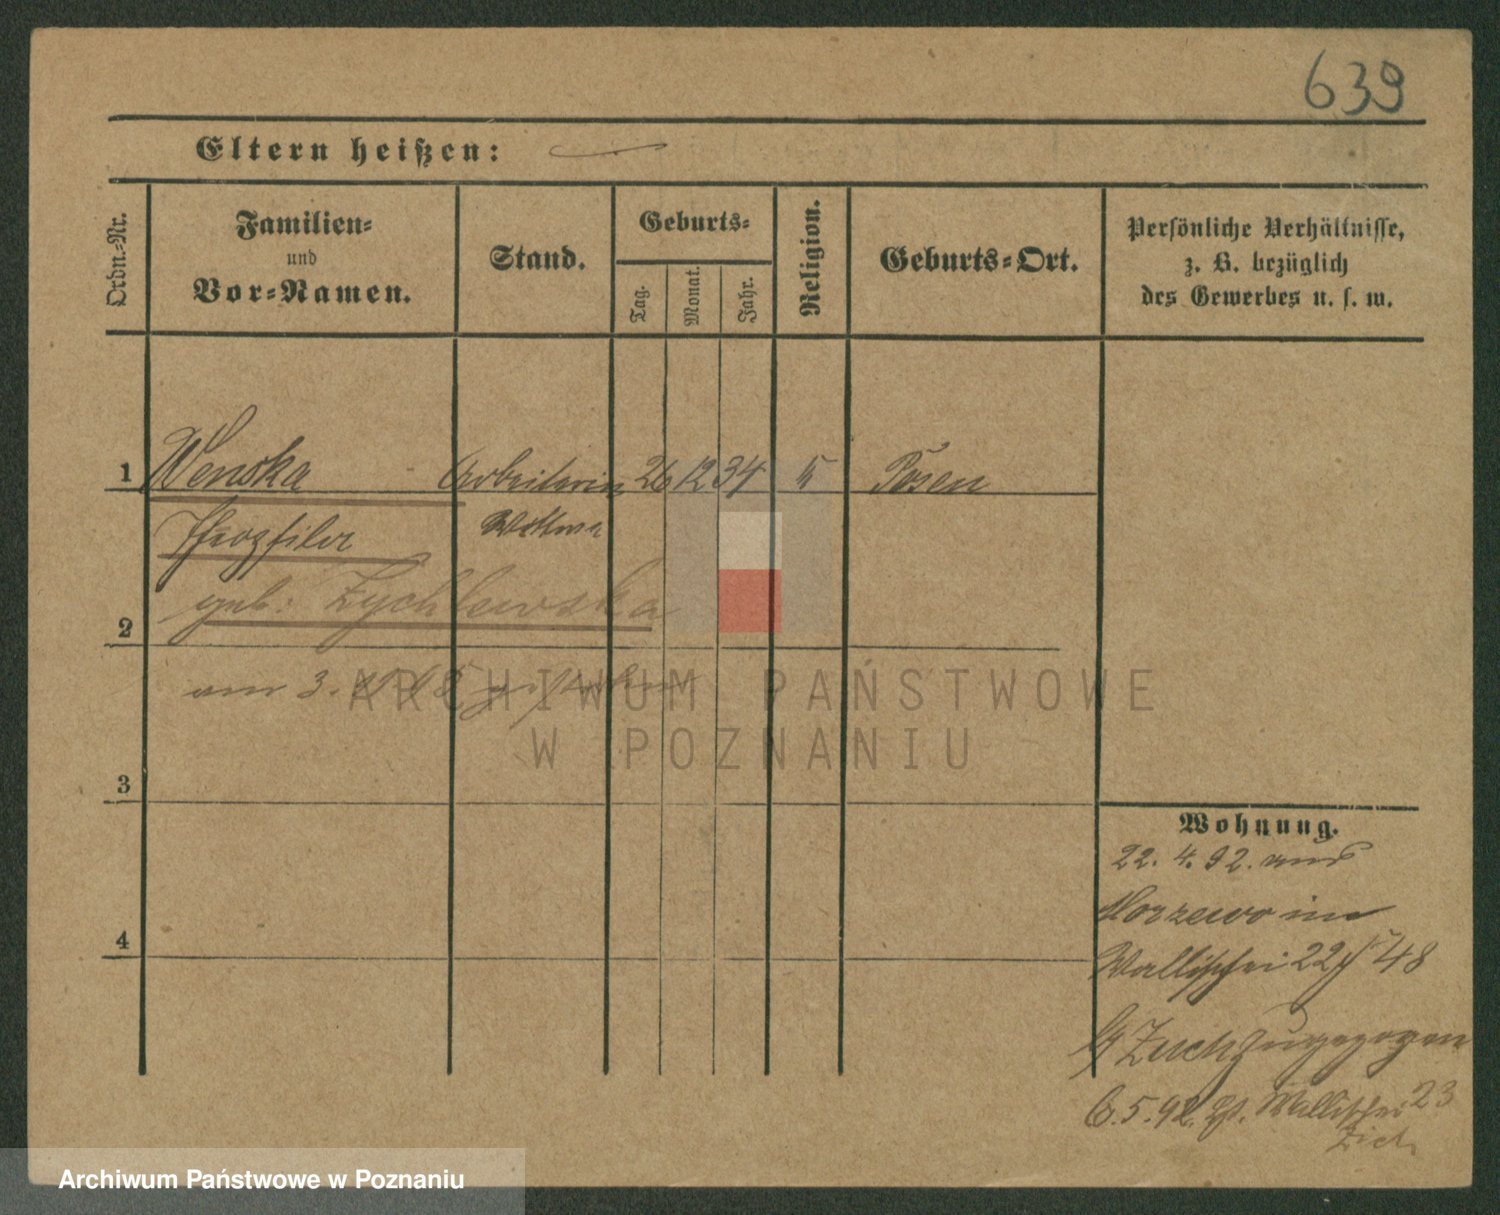 639
Eltern heißen:
Ordn.-Nr.
Familien-
und
Vor-Namen.
Stand.
Geburts-
Tag.
Monat.
Jahr.
Religion.
Geburts-Ort.
Persönliche Verhältnisse,
z. B. bezüglich
des Gewerbes u. s. w.
1 Wenska Arbeiterin 26 12 34 Posen
geb: Zychlewska
2
am 3. gestorben
ARCHIWUM PAŃSTWOWE
W POZNANIU
3
Wohnung.
22. 4. 92. aus
Morzewo in
Wallischei 22 48
4
zugezogen
6. 5. 92. Wallischei 23
Archiwum Państwowe w Poznaniu